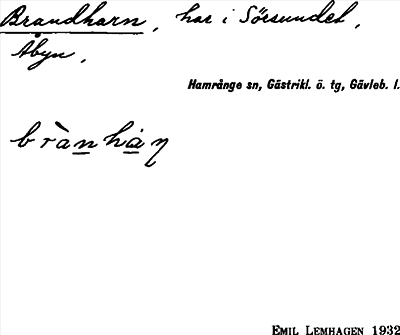 Brandharn, har i Sörsundet,
Åbyn.
Hamrånge sn, Gästrikl. ö. tg, Gävleb. l.
bràn hàn̨
EMIL LEMHAGEN 1932